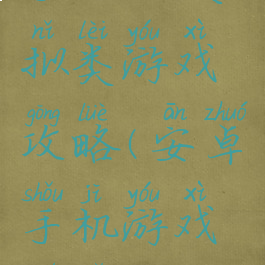 nǐ lèi yóu xì
拟类游戏
gōng lüè ān zhuó
攻略(安卓
shǒu jī yóu xì
手机游戏